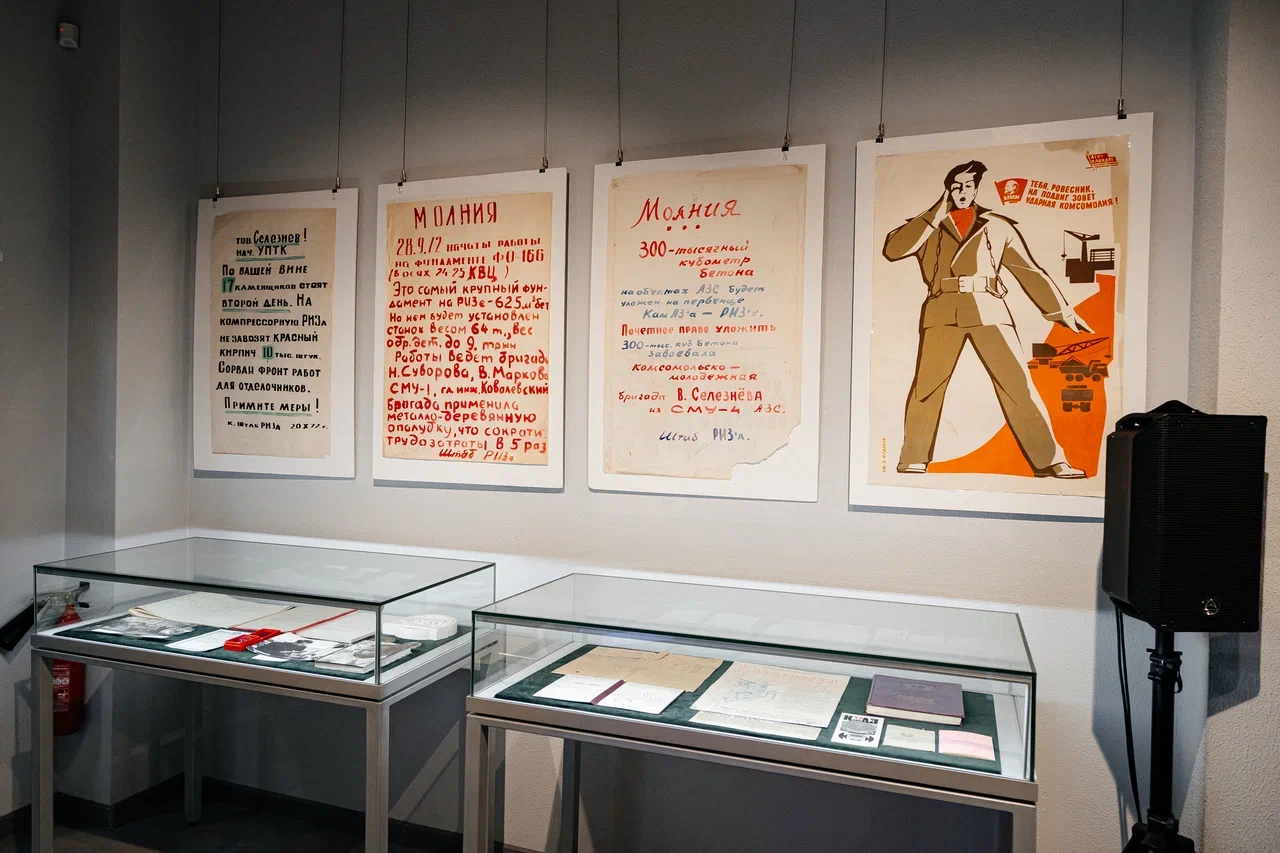 тов. Селезнев!
нач. УПТК
По вашей вине
17 каменщиков стоят
второй день. На
компрессорную РИЗа
не завозят красный
кирпич 10 тыс. штук.
Сорван фронт работ
для отделочников.
Примите меры!
к. штаб РИЗа 20.X.72 г.
МОЛНИЯ
28.9.72 начаты работы
на фундаменте ФО-166
(в осях 24-25 КВЦ)
Это самый крупный фун-
дамент на РИЗе - 625 м³ бет
На нем будет установлен
станок весом 64 т., вес
обр. дет. до 9, тонн
Работы ведет бригада
Н. Суворова, В. Маркова
СМУ-1, гл. инж. Ковалевский
Бригада применила
металло-деревянную
опалубку, что сократи
трудозатраты в 5 раз
Штаб РИЗа
Молния
300-тысячный
кубометр
бетона
на объектах АЗС будет
уложен на первенце
КамАЗ'а — РИЗ'е.
Почетное право уложить
300-тыс. куб бетона
завоевала
комсомольско —
молодежная
бригада В. Селезнёва
из СМУ-4 АЗС.
Штаб РИЗ'а.
ВЛКСМ
ТЕБЯ, РОВЕСНИК,
НА ПОДВИГ ЗОВЕТ
УДАРНАЯ КОМСОМОЛИЯ!
КМАЗ